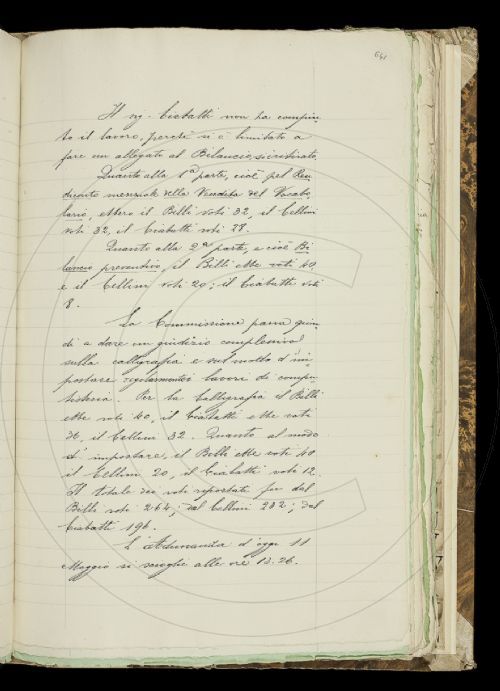 641
Il sig. Ciabatti non ha compiu-
to il lavoro, perché si è limitato a
fare un allegato al Bilancio
Quanto alla 1ª parte, cioè pel Ren-
diconto mensile della Vendita del Vocabo-
lario, ebbero il Billi voti 32, il Cellini
voti 32, il Ciabatti voti 28.
Quanto alla 2ª parte, e cioè Bi-
lancio preventivo, il Billi ebbe voti 40,
e il Cellini voti 20; il Ciabatti voti
8.
La Commissione passa quin-
di a dare un giudizio complessivo
sulla calligrafia e sul modo d'im-
postare regolarmente i lavori di compu-
tisteria. Per la Calligrafia il Billi
ebbe voti 40, il Ciabatti ebbe voti
36, il Cellini 32. Quanto al modo
d'impostare, il Billi ebbe voti 40
il Cellini 20, il Ciabatti voti 12.
Il totale dei voti riportati fu dal
Billi voti 264; dal Cellini 232; dal
Ciabatti 196.
L'Adunanza d'oggi 11
Maggio si scioglie alle ore 13.26.